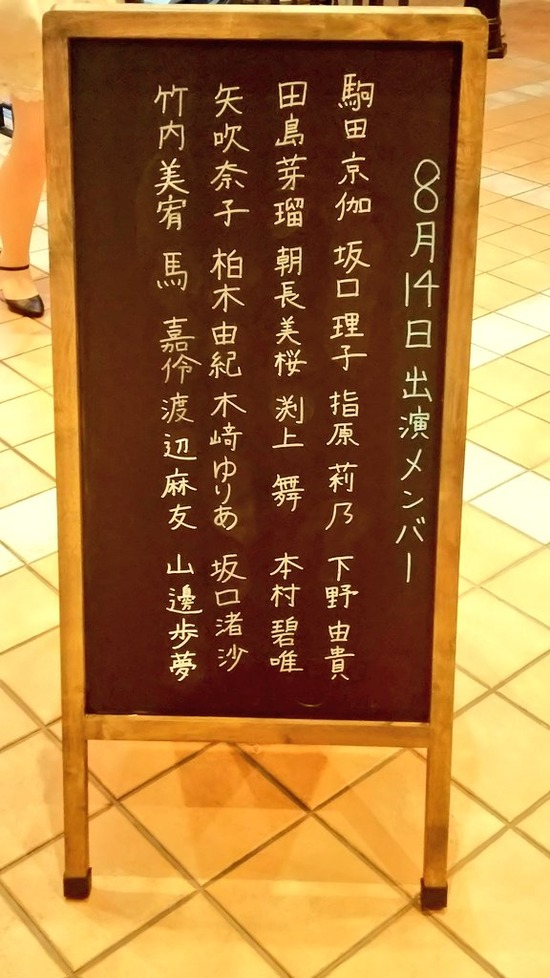 8月14日 出演メンバー
駒田京伽 坂口理子 指原莉乃 下野由貴
田島芽瑠 朝長美桜 渕上舞 本村碧唯
矢吹奈子 柏木由紀 木﨑ゆりあ 坂口渚沙
竹内美宥 馬嘉伶 渡辺麻友 山邊歩夢